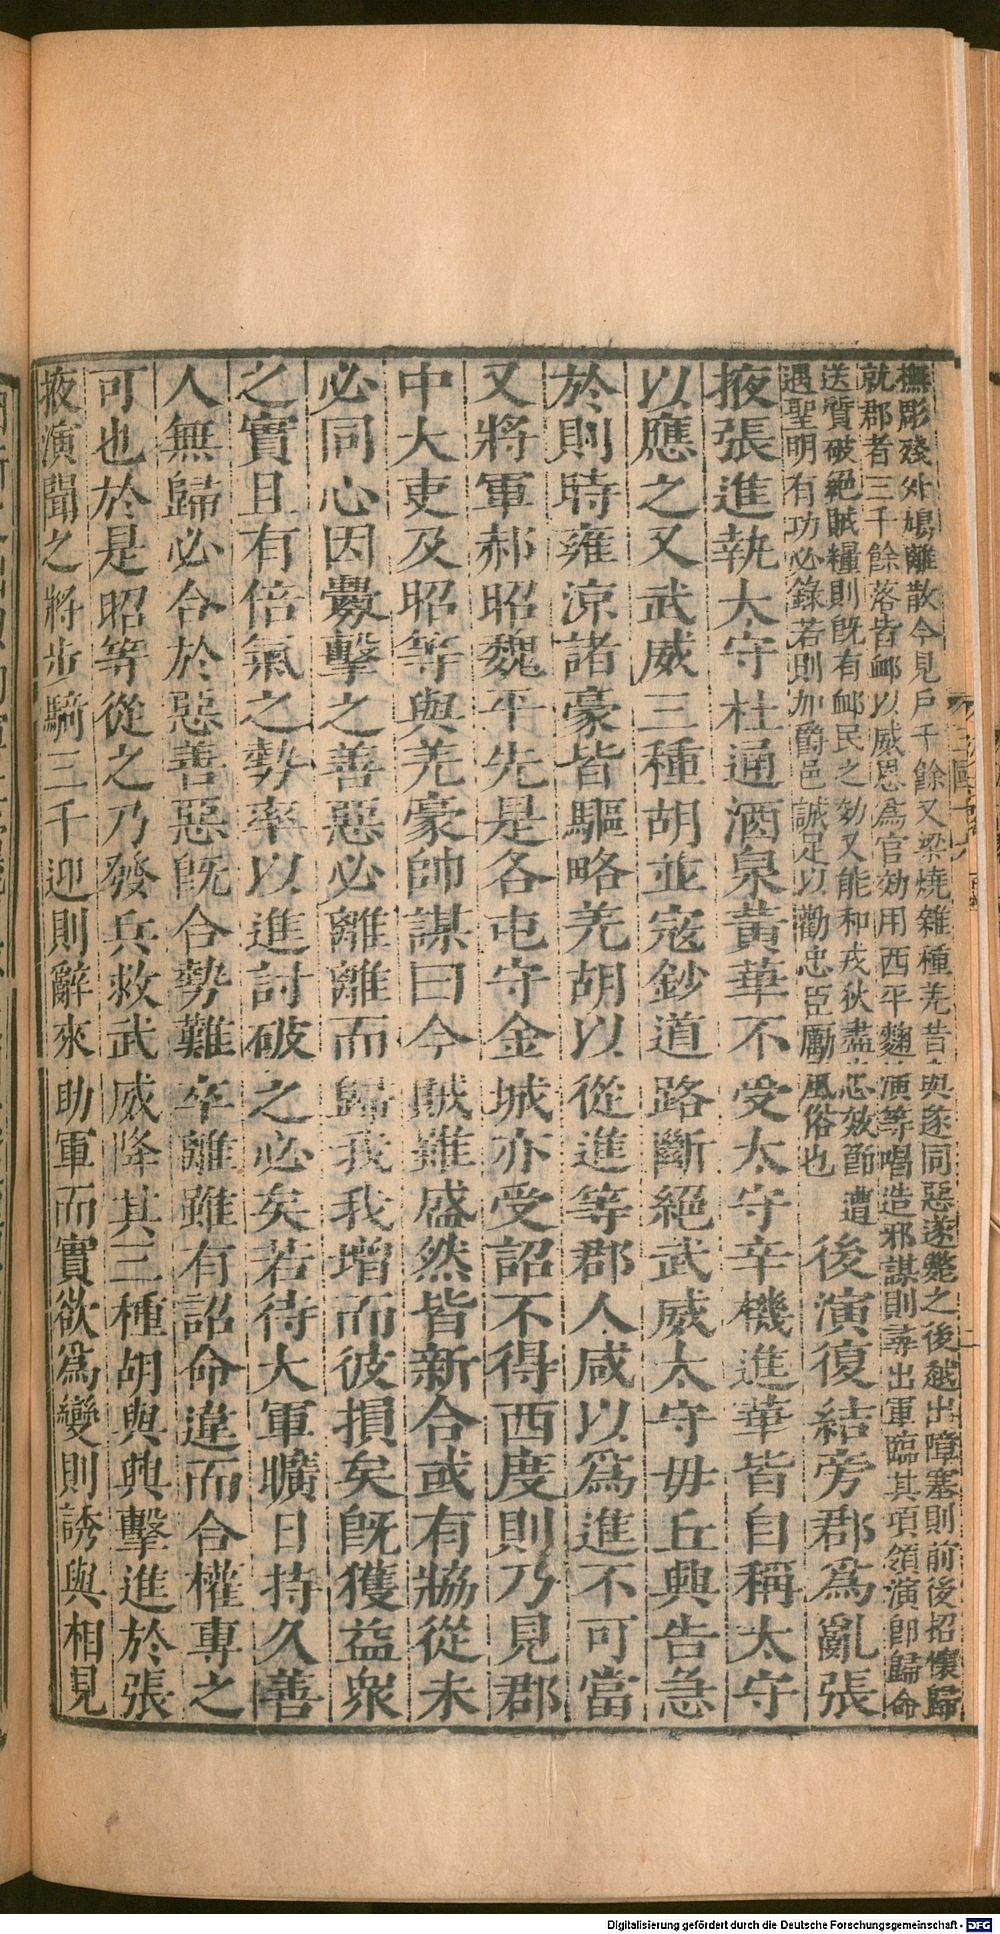 撫彫殘外鳩離散今見戶千餘又梁燒雜種羌昔與遂同惡遂斃之後越出障塞則前後招懷歸
就郡者三千餘落皆䘏以威恩爲官効用西平麴演等唱造邪謀則尋出軍臨其項領演卽歸命
送質破絶賊糧則旣有䘏民之効又能和戎狄盡忠效節遭
遇聖明有功必錄若則加爵邑誠足以勸忠臣勵風俗也
後演復結旁郡爲亂張
掖張進執太守杜通酒泉黃華不受太守辛機進華皆自稱太守
以應之又武威三種胡並寇鈔道路斷絕武威太守毋丘興告急
於則時雍涼諸豪皆驅略羌胡以從進等郡人咸以爲進不可當
又將軍郝昭魏平先是各屯守金城亦受詔不得西度則乃見郡
中大吏及昭等與羌豪帥謀曰今賊雖盛然皆新合或有脇從未
必同心因釁擊之善惡必離離而歸我我增而彼損矣旣獲益衆
之實且有倍氣之勢率以進討破之必矣若待大軍曠日持久善
人無歸必合於惡善惡旣合勢難卒離雖有詔命違而合權專之
可也於是昭等從之乃發兵救武威降其三種胡與興擊進於張
掖演聞之將步騎三千迎則辭來助軍而實欲爲變則誘與相見
Digitalisierung gefördert durch die Deutsche Forschungsgemeinschaft - DFG